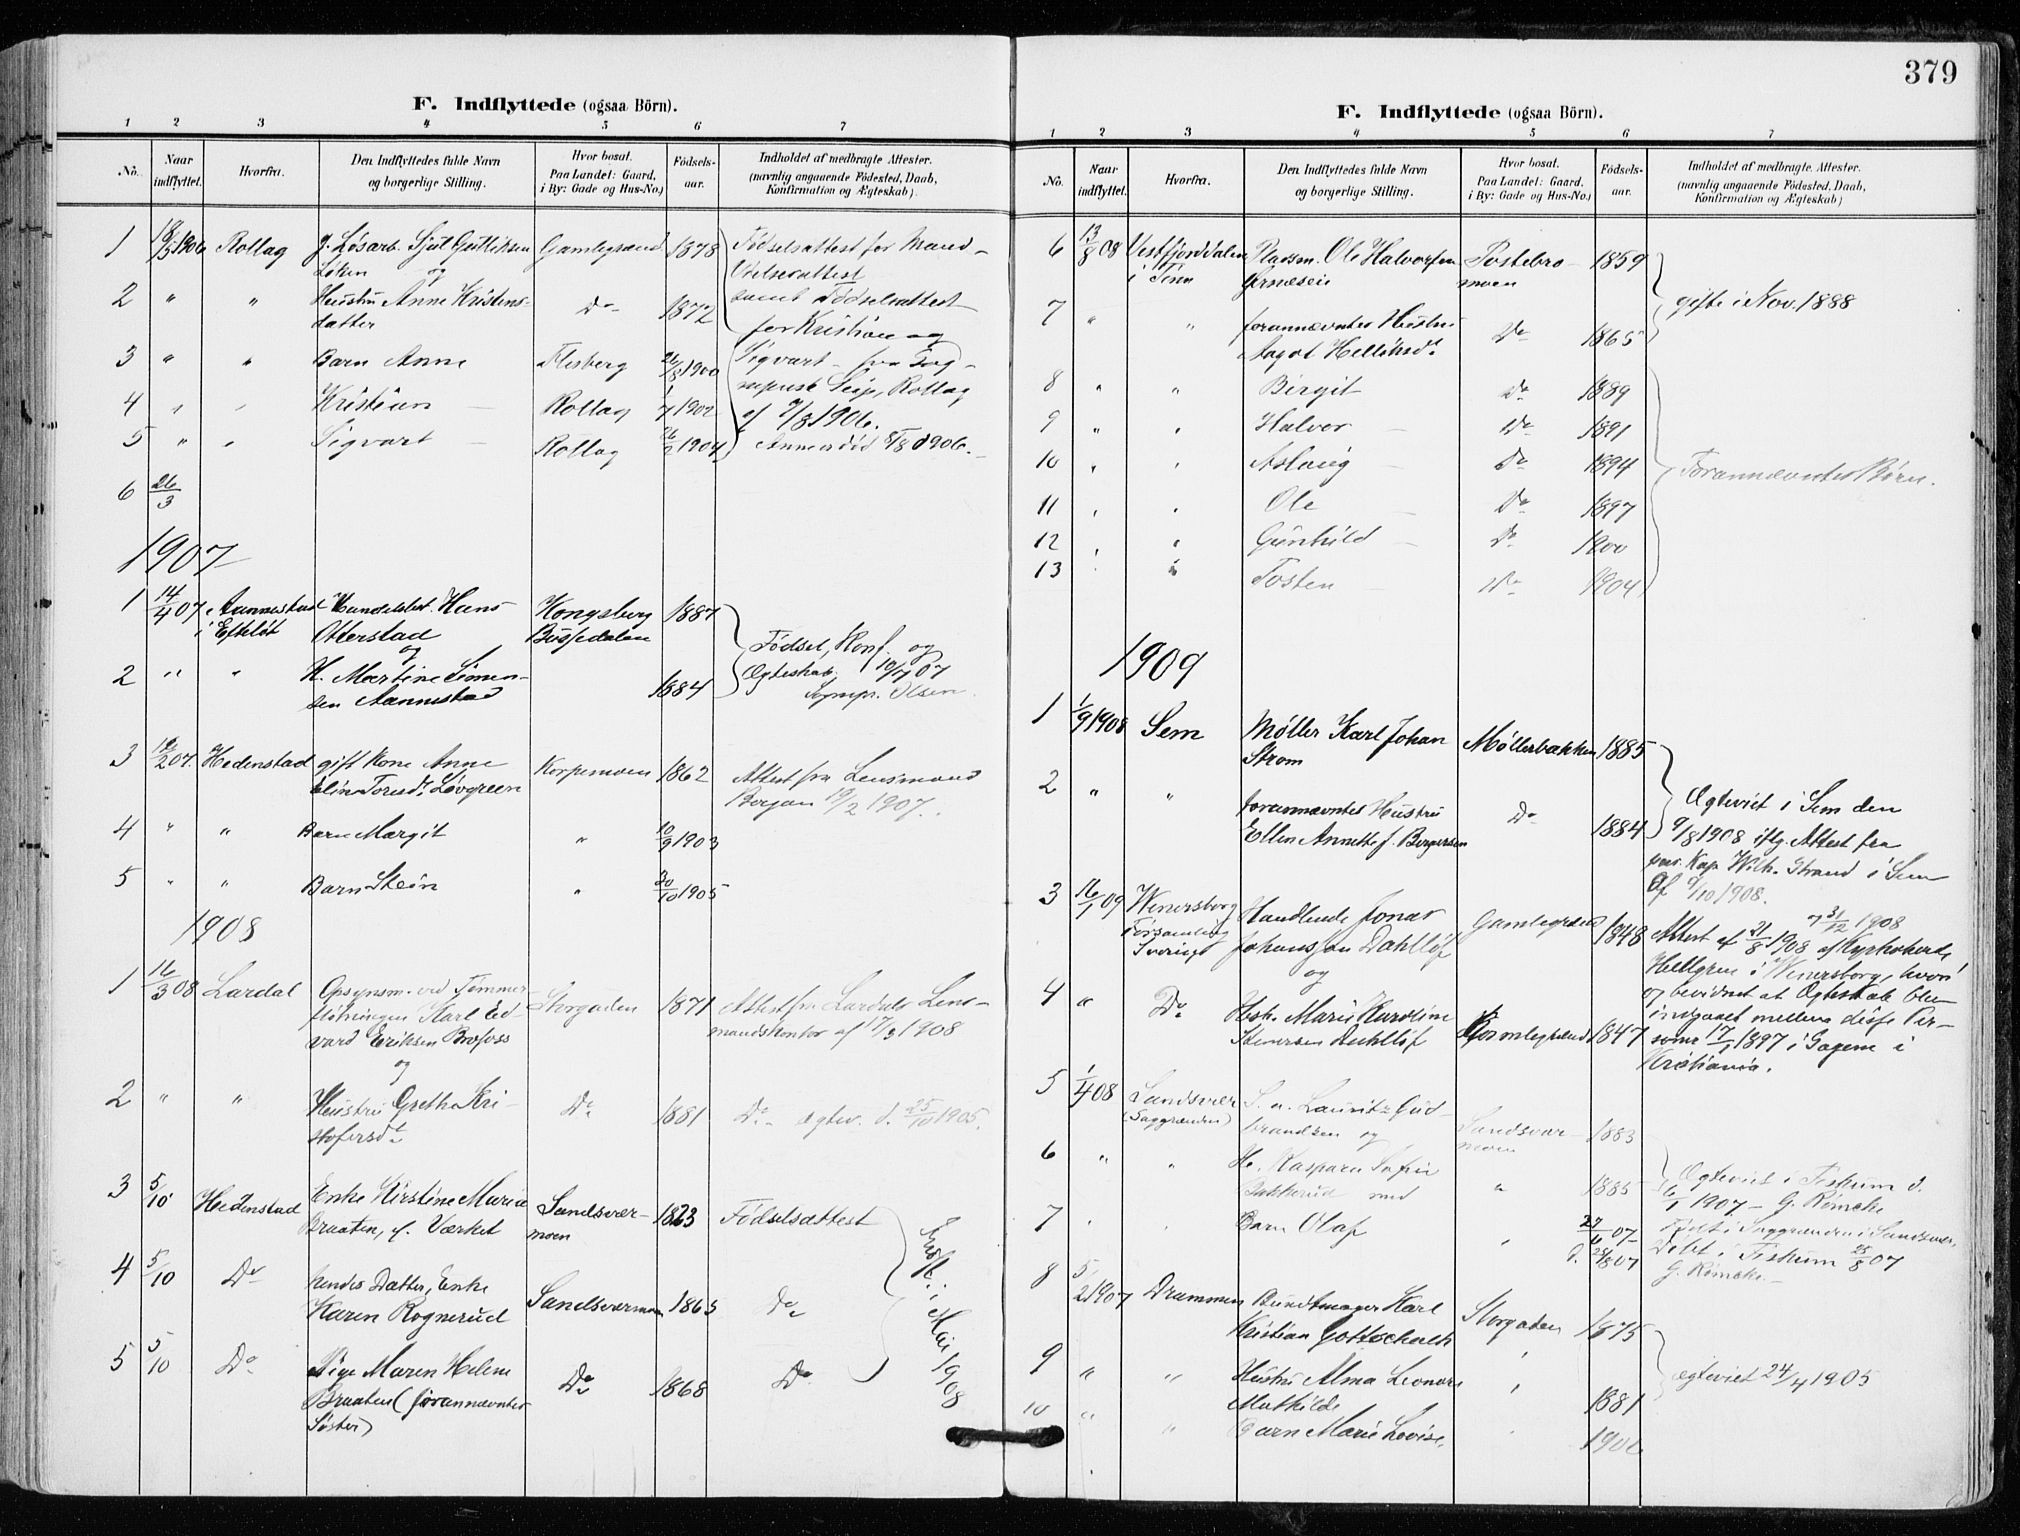 379
F. Indflyttede (ogsaa Börn).
1 2 3 4 5 6 7
No. Naar indflyttet. Hvorfra. Den Indflyttedes fulde Navn og borgerlige Stilling. Hvor bosat. Paa Landet: Gaard, i By: Gade og Hus-No.) Fødsels-aar. Indholdet af medbragte Attester. (navnlig angaaende Födested, Daab, Konfirmation og Ægteskab)
1 1906 Rollag g. Løsarb. Gamlegrænd 1878 Fødselsattest for Mand
Løken og Vielsesattest
2 " " Hustru Anne Kristens- Do 1872 samt Fødselsattest
datter for Kristian og
3 " " Barn Anne Flesberg 26/8 1900 Sigvart fra Sog-
nepræst Seip, Rollag
4 " " Kristian Rollag 1/7 1902 af 7/3 1906.
5 " " Sigvart Rollag 26/2 1904 Anne død 1906.
6 26/3
1907
1 14/4 07 Aannestad Handelsbet. Hans Kongsberg 1887
i Efteløt Otterstad Bussedalen Fødsel, Konf. og
og Ægteskab, 07
2 " " H. Martine Simen- 1884 Sognepr. Olsen
sen Aannestad
3 07. Hedenstad gift Kone Anne Korpemoen 1862 Attest fra Lensmand
Løvgreen Borgan 19/2 1907.
4 " " Barn Margit " 10/9 1903
5 " " Barn Stein " 20/10 1905
1908
1 16/3 08 Lardal Opsynsm. ved Tømmer- Storgaden 1871 Attest fra Lardals Lens-
fløtningen Karl Ed- mandskontor af 1908
vard Eriksen Brofoss
og
2 " " Hustru Grethe Kri- Do 1881 Do ægtev. d. 25/10 1905.
stofersdt
3 5/10 Hedenstad Enke Kirstine Marie Sandsvær- 1823 Fødselsattest
Braaten, f. Værket moen
4 5/10 Do hendes Datter, Enke
Karen Rognerud Sandsværmoen 1865 Do
5 5/10 Do Pige Maren Helene Do 1868 Do
Braaten (forannævntes
Søster)
i Mai 1908
F. Indflyttede (ogsaa Börn).
1 2 3 4 5 6 7
No. Naar indflyttet. Hvorfra. Den Indflyttedes fulde Navn og borgerlige Stilling. Hvor bosat. Paa Landet: Gaard, i By: Gade og Hus-No.) Fødsels-aar. Indholdet af medbragte Attester. (navnlig angaaende Födested, Daab, Konfirmation og Ægteskab)
6 13/8 08 Vestfjorddalen Pladsm. Ole Halvorsen Tostebro- 1859
i Tinn Ørnæseie moen
gifte i Nov. 1888
7 " " forannævntes Hustru
Aagot Do 1865
8 " " Birgit Do 1889
9 " " Halvor Do 1891
10 " " Aslaug Do 1894 Forannævntes Børn.
11 " " Ole Do 1897
12 " " Gunhild Do 1900
13 " " Tosten Do 1904
1909
1 1/9 1908 Sem Møller Karl Johan Møllerbakken 1885
Strøm
2 " " forannævntes Hustru Do 1884 Ægteviet i Sem den
Ellen Annette f. Bergersen 9/8 1908 iflg. Attest fra
Kap. Wilh. Strand i Sem
af 9/10 1908.
3 16/1 09 Wenersborg Handlende Jonas Gamlegrænd 1848 31/12 1908
Forsamling Johansson Dahllöf Attest af 21/8 1908 af Kyrkoherde
Sverige og Hellgren i Wenersborg, hvori
4 " Do Hst. Marie Karoline og bevidnet at Ægteskab blev
Dahllöf Gamlegrænd 1847 indgaaet mellem disse Per-
soner 17/1 1897 i Gagene i
Kristiania.
5 1/4 08 Sandsvær S. a. Lauritz Gud- Sandsvær- 1883
(Saggrænden) brandsen og moen
6 " " H. Kasparа Sofie " 1885 Ægteviet i Fiskum d.
Bakkerud med 6/1 1907 G. Rømcke
7 Barn Olaf " 27/6 07 Født i Saggrænden i Sandsvær.
d. 25/8 07 Døbt i Fiskum 25/8 07
G. Rømcke
8 5/2 1907 Drammen Buntmager Karl Storgaten 1875
Kristian Gottschalk
9 " " Hustru Alma Leonore " 1881 ægteviet 24/4 1905
Mathilde
10 " " Barn Marie Lovise, " 1906